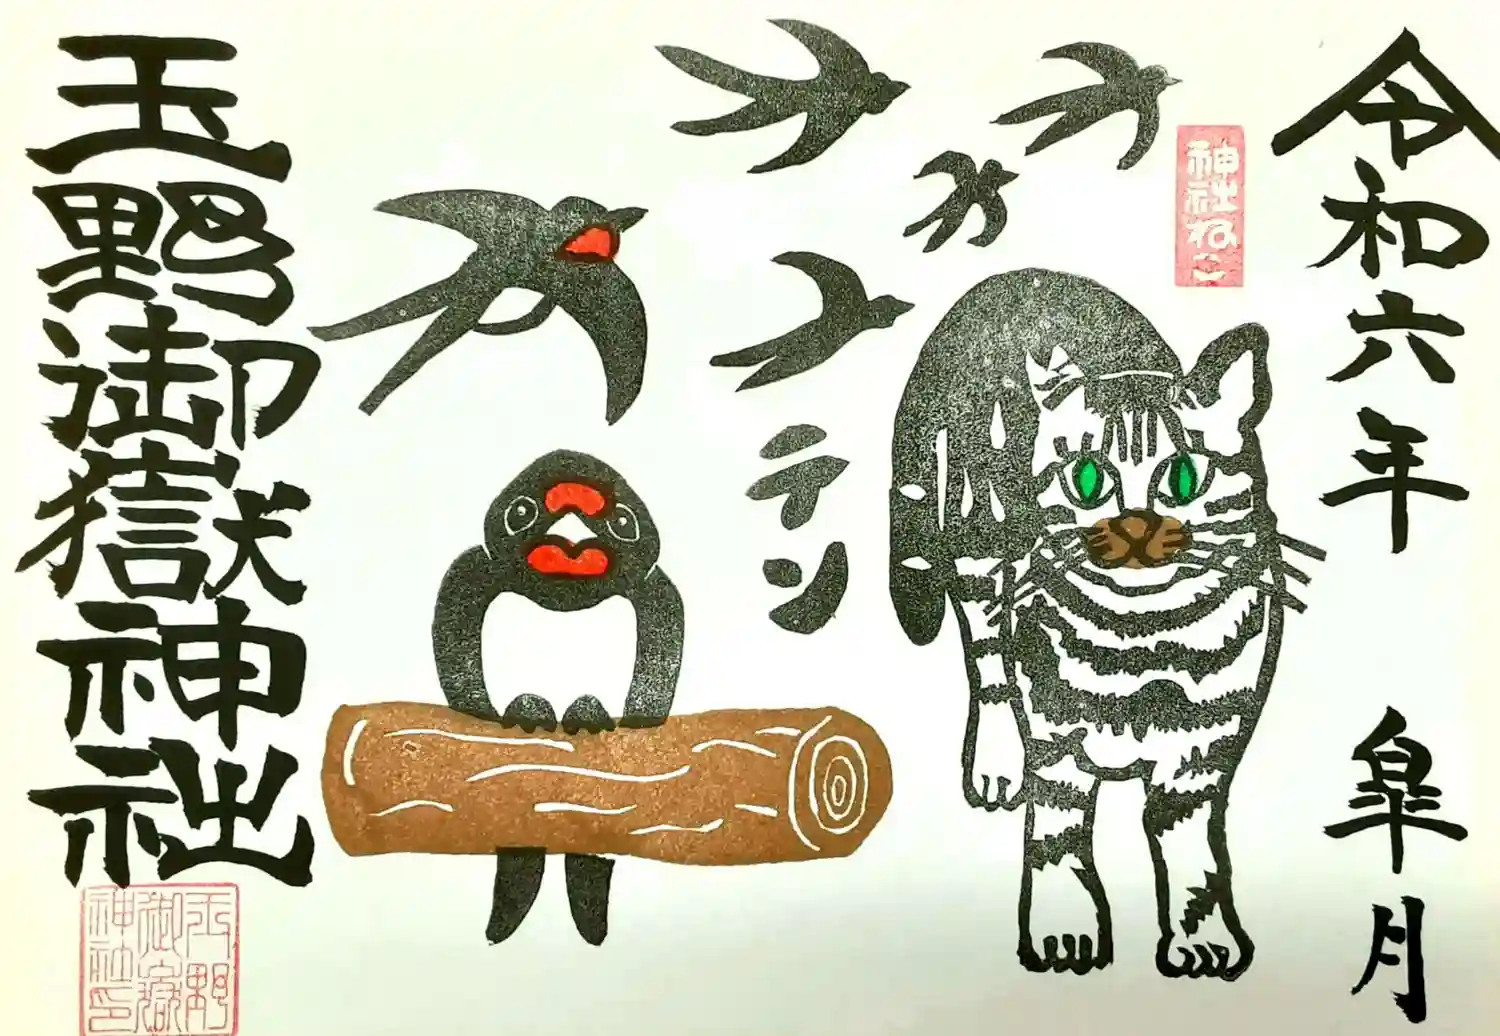 令和六年 皐月
神社ねこ
テン
玉野御嶽神社
玉野
御嶽
神社印